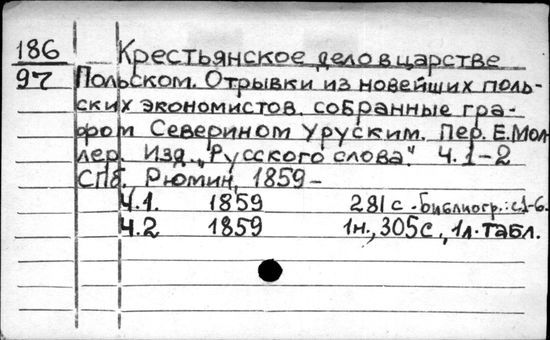 186
97
Крестьянское дело в царстве
Польском. Отрывки из новейших поль-
ских экономистов, собранные гра-
фом Северином Уруским. Пер. Е. Мол-
лер. Изд. „Русского слова". Ч. 1-2
СПб., Рюмин, 1859-
Ч.1. 1859 281 с. - библиогр.: с. 1-6.
Ч.2 1859 1н., 305 с., 1 л. табл.